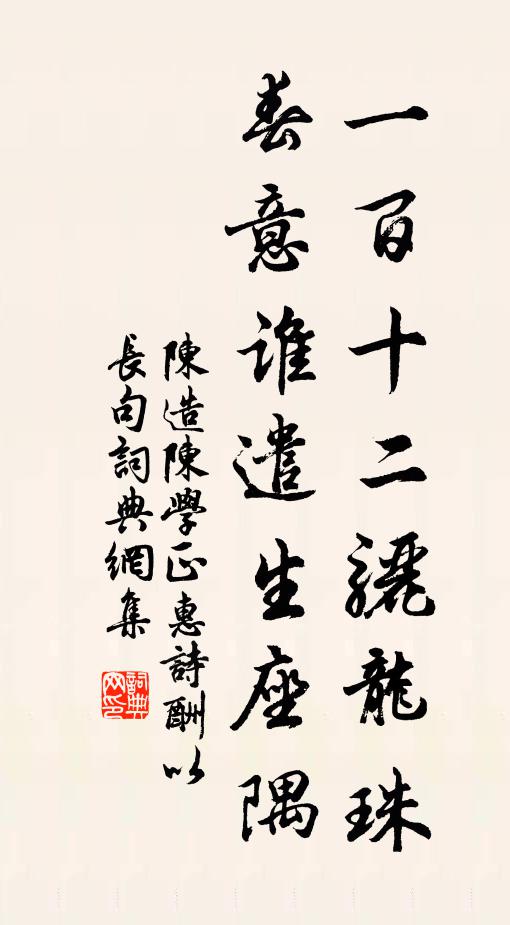 一百十二驪龍珠
春意誰遣生座隅
陳造陳學正惠詩酬以
長句詞典網集
詞典網印